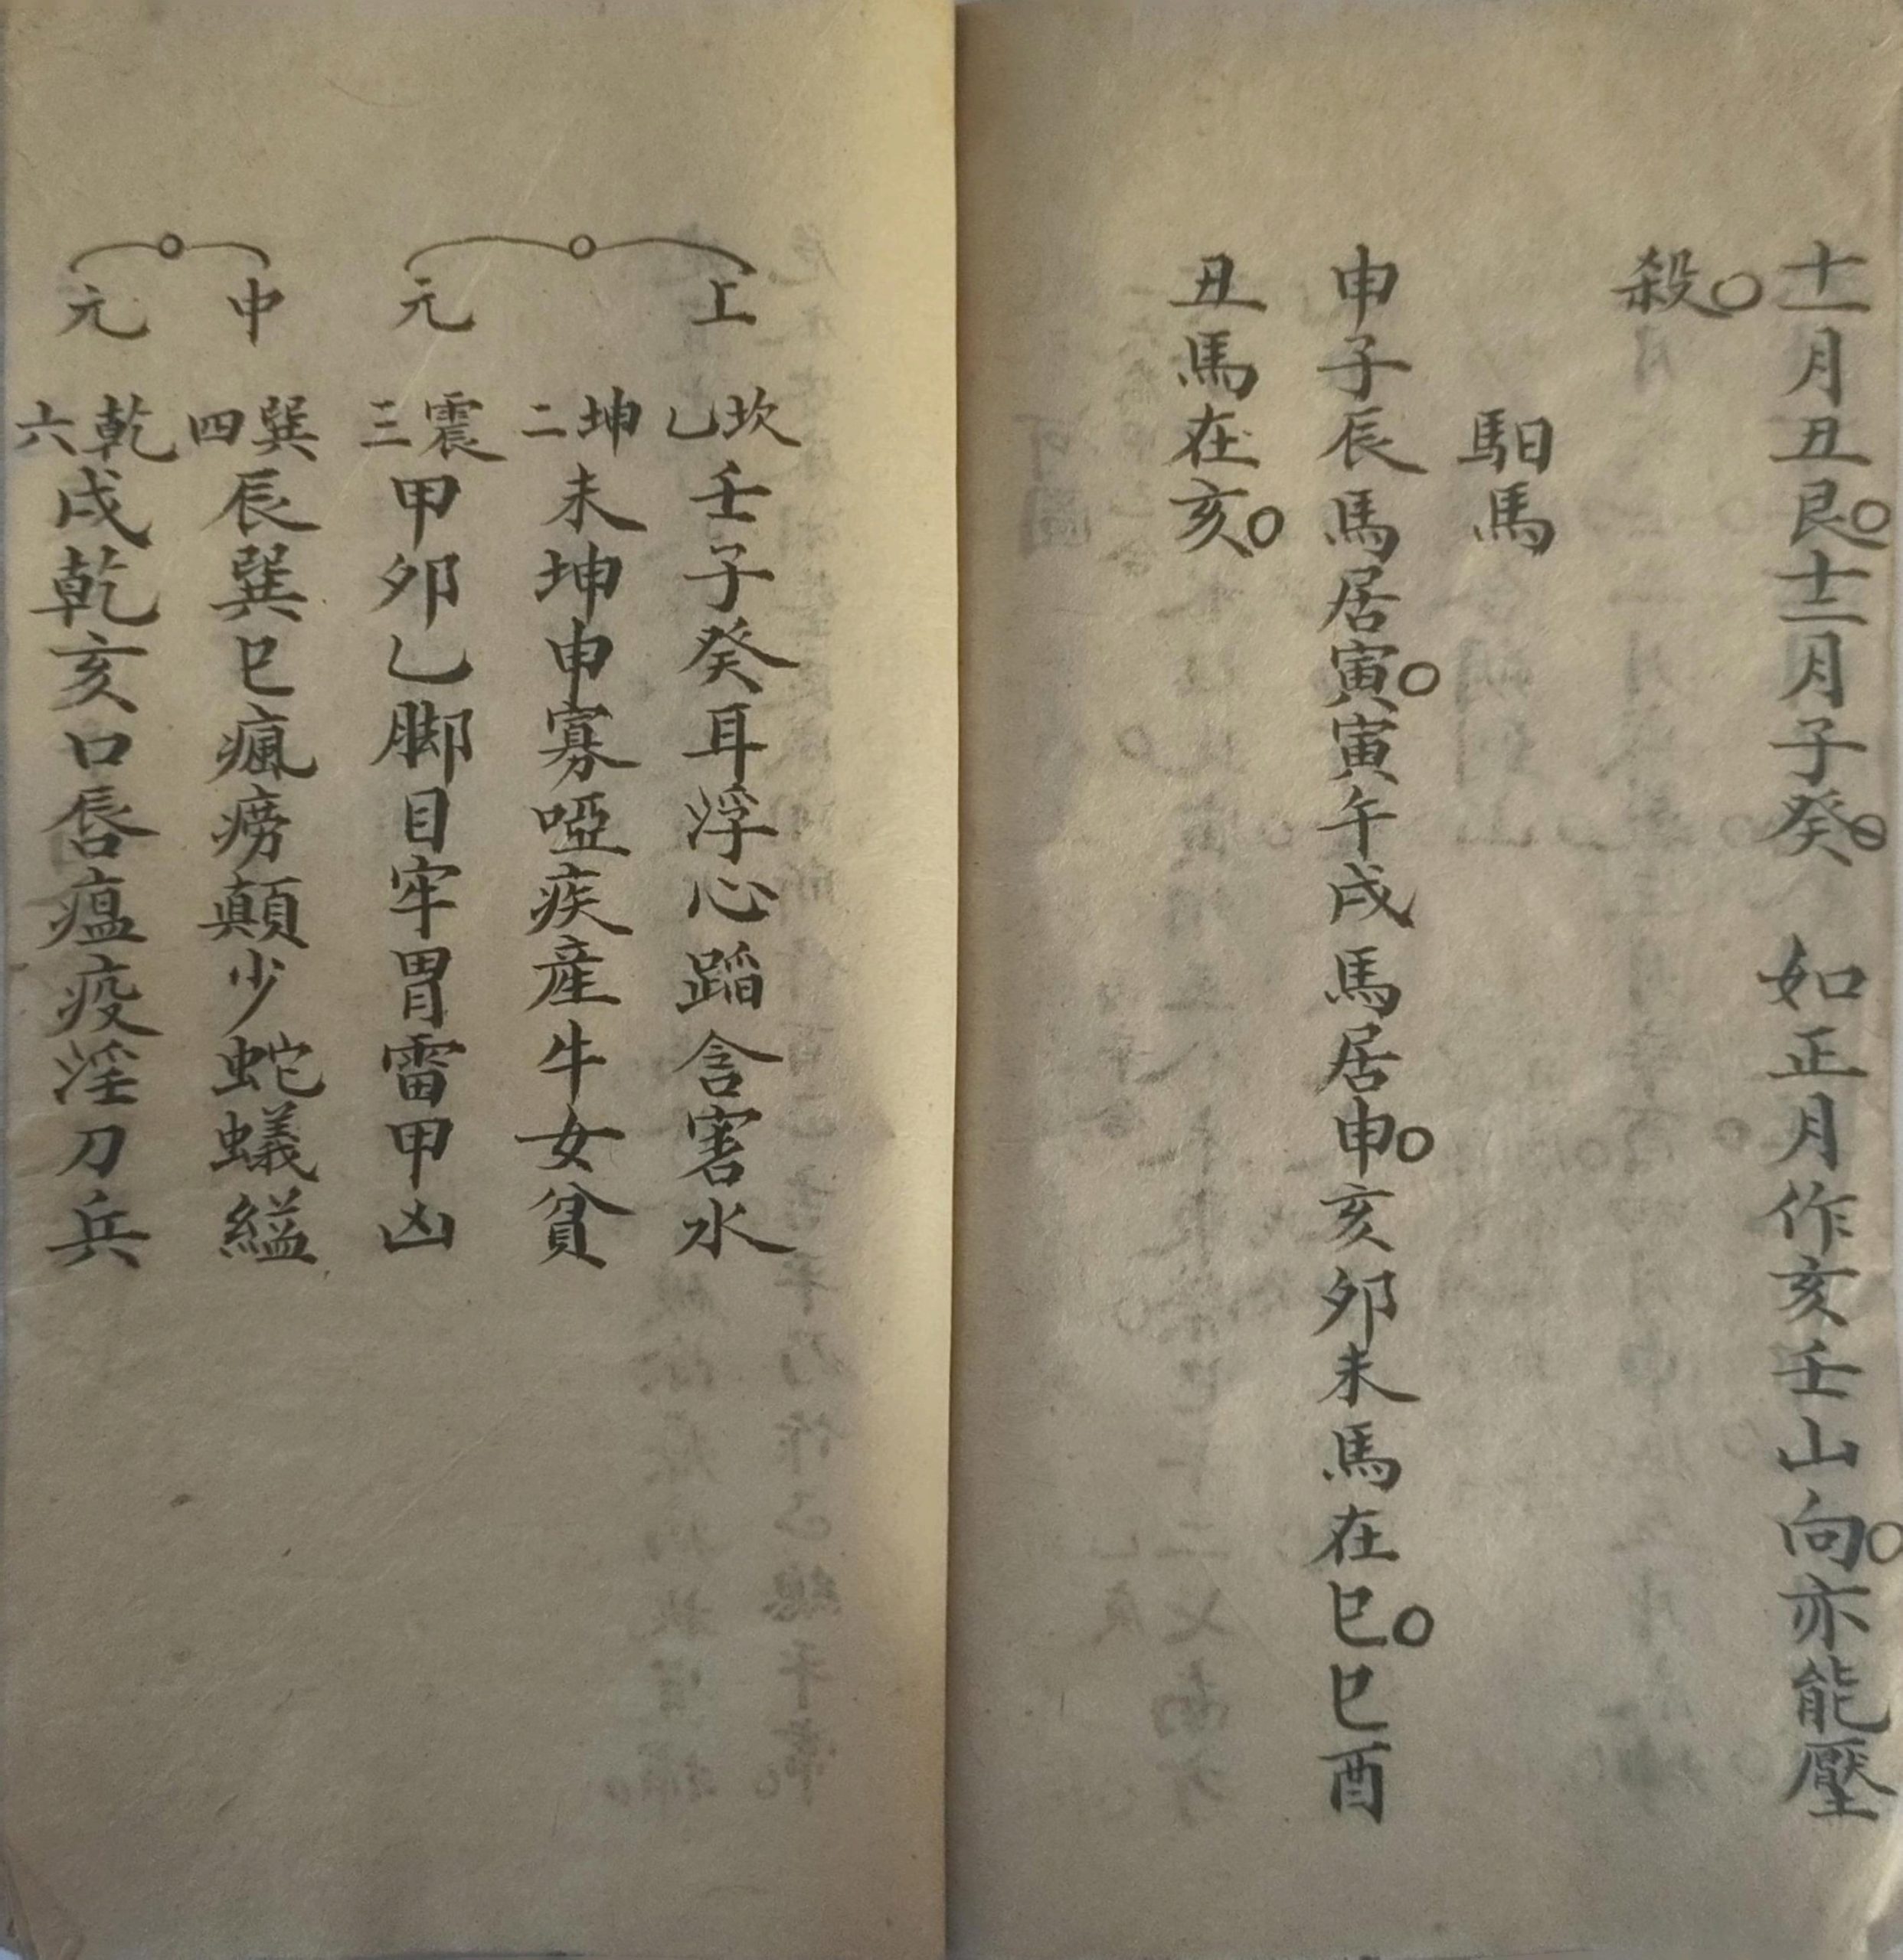 十一月丑艮○十二月子癸○如正月作亥壬山向○亦能壓
殺○
馹馬
申子辰馬居寅○寅午戌馬居申○亥卯未馬在巳○巳酉
丑馬在亥○
上元
坎乙壬子癸耳浮心蹈含害水
坤二未坤申寡啞疾產牛女貧
震三甲卯乙脚目牢胃雷甲凶
中元
巽四辰巽巳瘋癆顛少蛇蟻縊
乾六戌乾亥口唇瘟疫淫刀兵